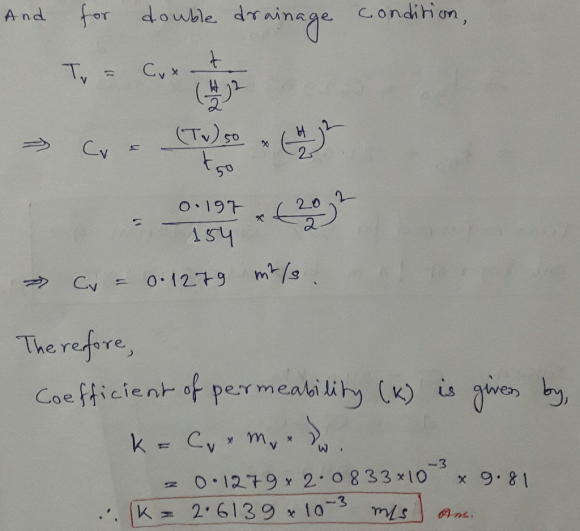 And for double drainage condition,
Tv = Cv × t / (H/2)²
⇒ Cv = (Tv)50 / t50 × (H/2)²
= 0.197 / 154 × (20/2)²
⇒ Cv = 0.1279 m²/s.
Therefore,
Coefficient of permeability (k) is given by,
k = Cv × mv × γw.
= 0.1279 × 2.0833×10⁻³ × 9.81
∴ k = 2.6139 × 10⁻³ m/s Ans.